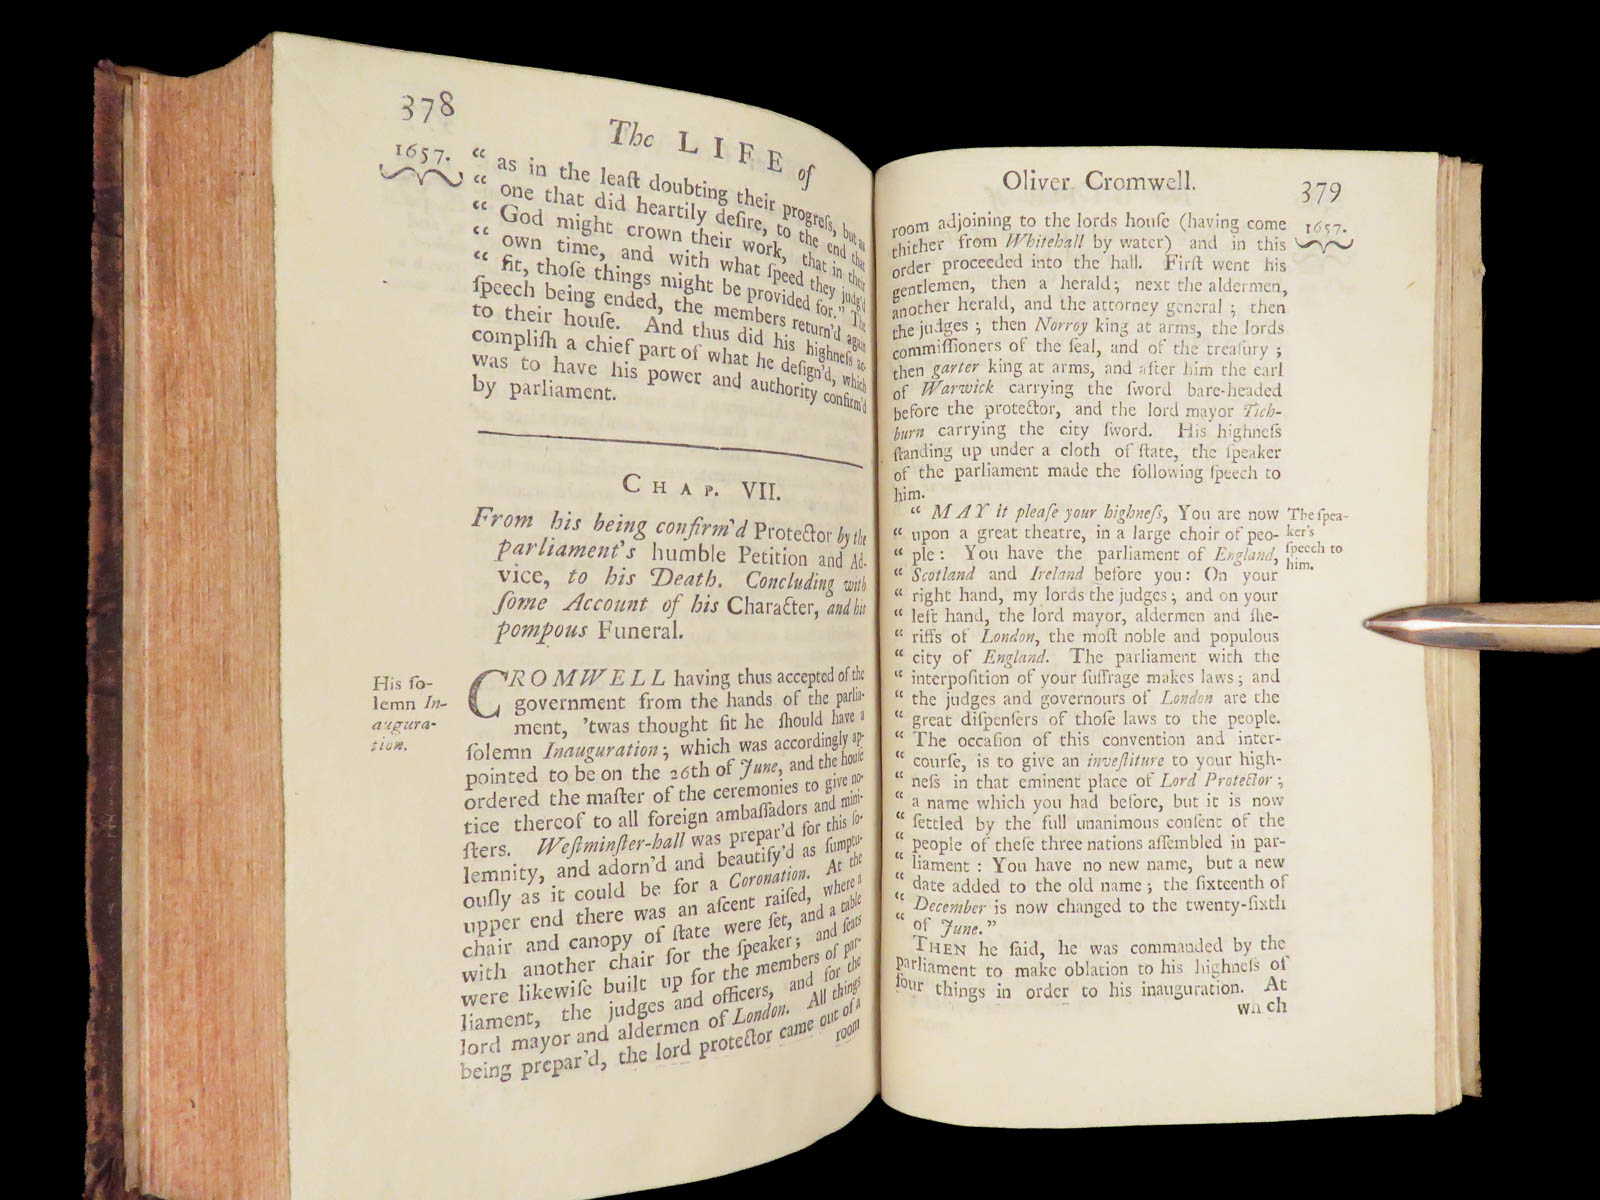 378
The LIFE of
1657.
“ as in the leaſt doubting their progreſs, but as
“ one that did heartily deſire, to the end that
“ God might crown their work, that in their
“ own time, and with what ſpeed they judg'd
“ fit, thoſe things might be provided for.” The
ſpeech being ended, the members return'd again
to their houſe. And thus did his highneſs ac-
compliſh a chief part of what he deſign'd, which
was to have his power and authority confirm'd
by parliament.
CHAP. VII.
From his being confirm'd Protector by the
parliament's humble Petition and Ad-
vice, to his Death. Concluding with
ſome Account of his Character, and his
pompous Funeral.
His ſo-
lemn In-
augura-
tion.
CROMWELL having thus accepted of the
government from the hands of the parlia-
ment, 'twas thought fit he ſhould have a
ſolemn Inauguration; which was accordingly ap-
pointed to be on the 26th of June, and the houſe
ordered the maſter of the ceremonies to give no-
tice thereof to all foreign ambaſſadors and mini-
ſters. Weſtminſter-hall was prepar'd for this ſo-
lemnity, and adorn'd and beautify'd as ſumptu-
ouſly as it could be for a Coronation. At the
upper end there was an aſcent raiſed, where a
chair and canopy of ſtate were ſet, and a table
with another chair for the ſpeaker; and ſeats
were likewiſe built up for the members of par-
liament, the judges and officers, and for the
lord mayor and aldermen of London. All things
being prepar'd, the lord protector came out of a
room
Oliver Cromwell.
379
1657.
room adjoining to the lords houſe (having come
thither from Whitehall by water) and in this
order proceeded into the hall. Firſt went his
gentlemen, then a herald; next the aldermen,
another herald, and the attorney general; then
the judges; then Norroy king at arms, the lords
commiſſioners of the ſeal, and of the treaſury;
then garter king at arms, and after him the earl
of Warwick carrying the ſword bare-headed
before the protector, and the lord mayor Tich-
burn carrying the city ſword. His highneſs
ſtanding up under a cloth of ſtate, the ſpeaker
of the parliament made the following ſpeech to
him.
“ MAY it pleaſe your highneſs, You are now
“ upon a great theatre, in a large choir of peo-
“ ple: You have the parliament of England,
“ Scotland and Ireland before you: On your
“ right hand, my lords the judges; and on your
“ left hand, the lord mayor, aldermen and ſhe-
“ riffs of London, the moſt noble and populous
“ city of England. The parliament with the
“ interpoſition of your ſuffrage makes laws; and
“ the judges and governours of London are the
“ great diſpenſers of thoſe laws to the people.
“ The occaſion of this convention and inter-
“ courſe, is to give an inveſtiture to your high-
“ neſs in that eminent place of Lord Protector;
“ a name which you had before, but it is now
“ ſettled by the full unanimous conſent of the
“ people of theſe three nations aſſembled in par-
“ liament: You have no new name, but a new
“ date added to the old name; the ſixteenth of
“ December is now changed to the twenty-ſixth
“ of June.”
The ſpea-
ker's
ſpeech to
him.
THEN he ſaid, he was commanded by the
parliament to make oblation to his highneſs of
four things in order to his inauguration. At
which